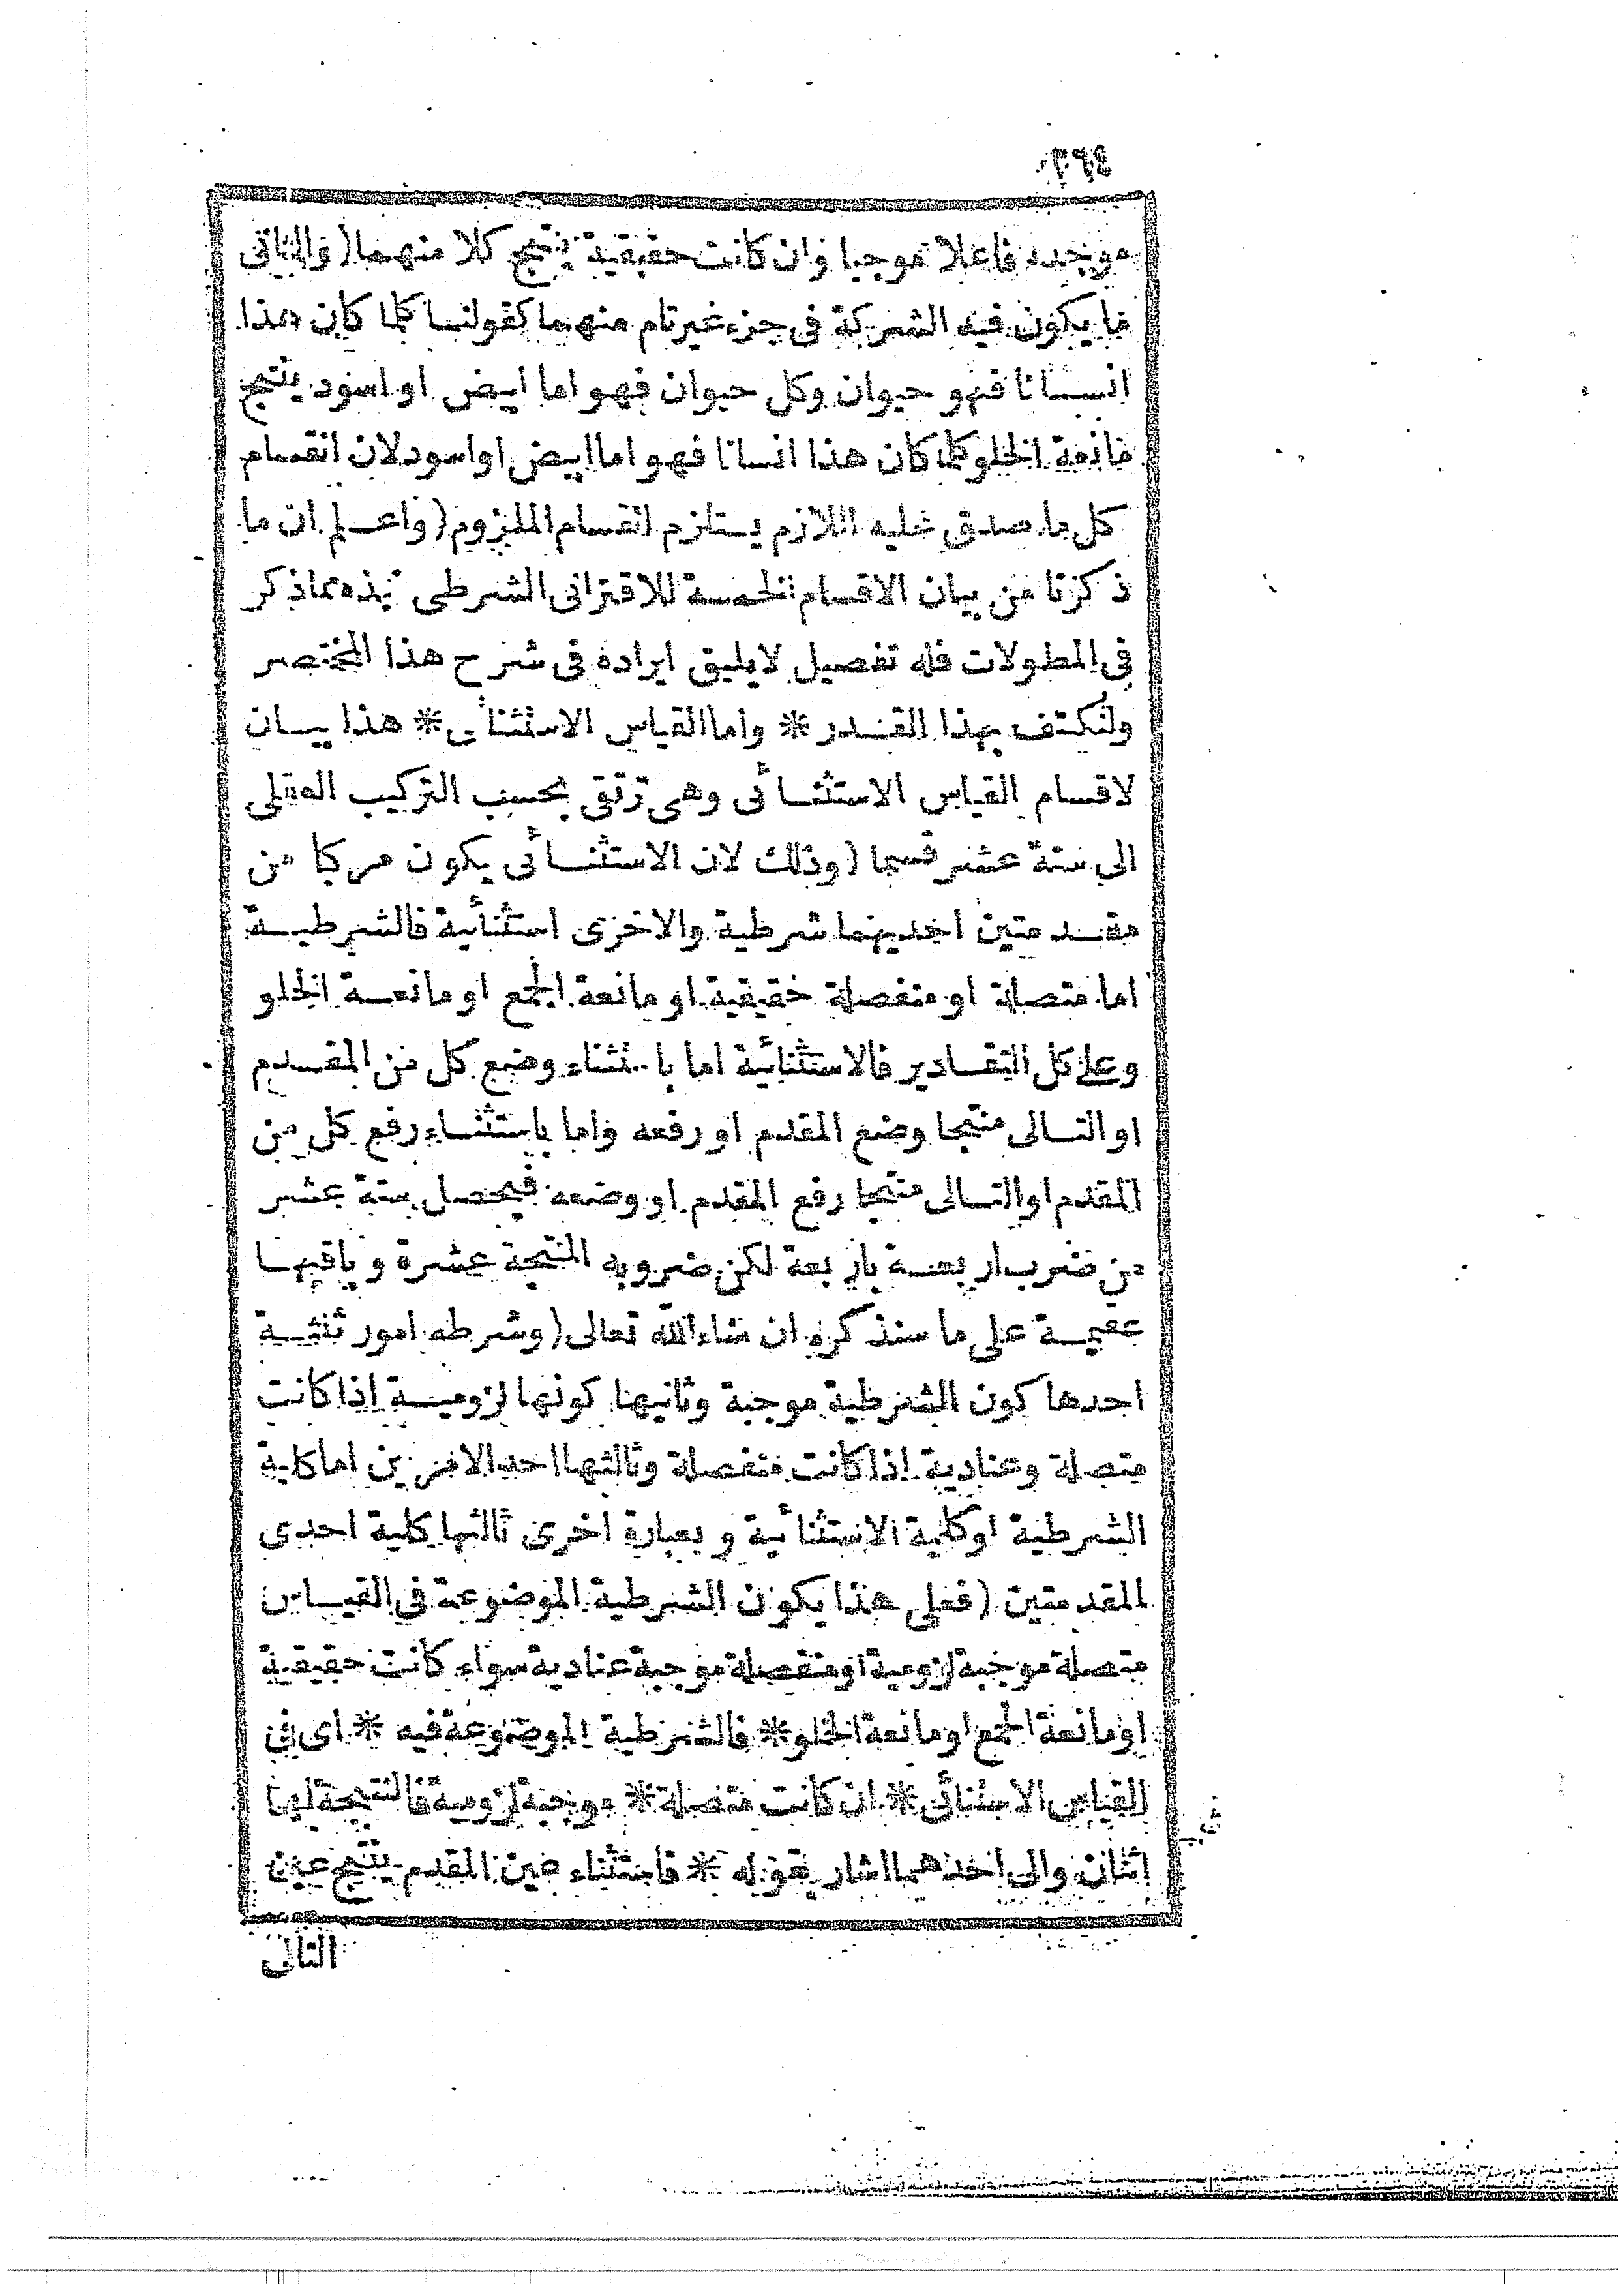 موجده فاعلا موجبا وان كانت حقيقية ينتج كلا منهما (والثانى
ما يكون فيه الشركة فى جزء غير تام منهما كقولنا كلا كان هذا
انسانا فهو حيوان وكل حيوان فهو اما ابيض او اسود ينتج
مانعة الخلو كلا كان هذا انسانا فهو اما ابيض او اسود لان انقسام
كل ما صدق عليه اللازم يستلزم انقسام الملزوم (واعلم ان ما
ذكرنا من بيان الاقسام الخمسة للاقترانى الشرطى نبذه مما ذكر
فى المطولات فله تفصيل لا يليق ايراده فى شرح هذا المختصر
ولنكتف بهذا القدر * واما القياس الاستثنائى * هذا بيان
لاقسام القياس الاستثنائى وهى ترتقى بحسب التركيب العقلى
الى ستة عشر قسما (وذلك لان الاستثنائى يكون مركبا من
مقدمتين احديهما شرطية والاخرى استثنائية فالشرطية
اما متصلة او منفصلة حقيقية او مانعة الجمع او مانعة الخلو
وعلى كل التقادير فالاستثنائية اما باستثناء وضع كل من المقدم
او التالى منتجا وضع المقدم او رفعه واما باستثناء رفع كل من
المقدم او التالى منتجا رفع المقدم او وضعه فيحصل ستة عشر
من ضرب اربعة باربعة لكن ضروبه المنتجة عشرة وباقيها
عقيمة على ما سنذكره ان شاء الله تعالى (وشرطه امور ثلثة
احدها كون الشرطية موجبة وثانيها كونها لزومية اذا كانت
متصلة وعنادية اذا كانت منفصلة وثالثها احد الامرين اما كلية
الشرطية او كلية الاستثنائية وبعبارة اخرى ثالثها كلية احدى
المقدمتين (فعلى هذا يكون الشرطية الموضوعة فى القياس
متصلة موجبة لزومية او منفصلة موجبة عنادية سواء كانت حقيقية
او مانعة الجمع او مانعة الخلو * فالشرطية الموضوعة فيه * اى فى
القياس الاستثنائى * ان كانت متصلة * موجبة لزومية فالنتيجة لها
اثنان والى احدهما اشار بقوله * فاستثناء عين المقدم ينتج عين
التالى